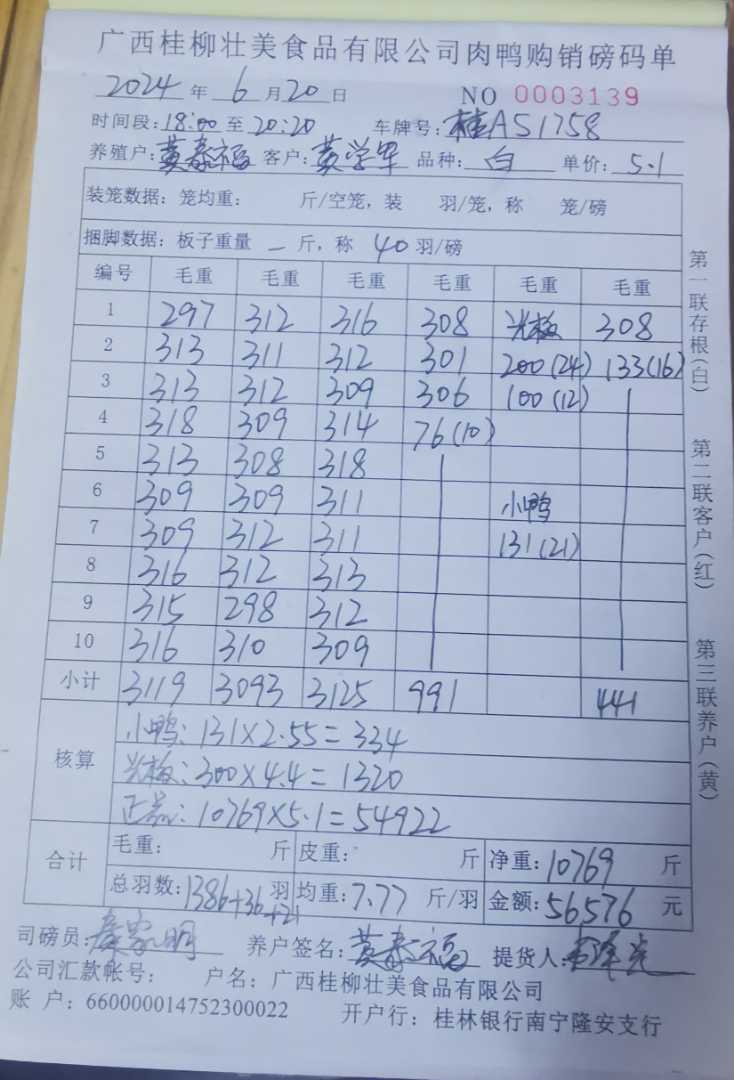 广西桂柳壮美食品有限公司肉鸭购销磅码单
2024 年 6 月 20 日 NO 0003139
时间段: 18:00 至 20:20 车牌号: 桂A51758
养殖户: 黄泰福 客户: 黄学军 品种: 白 单价: 5.1
装笼数据: 笼均重: 斤/空笼, 装 羽/笼, 称 笼/磅
捆脚数据: 板子重量 — 斤, 称 40 羽/磅
编号 毛重 毛重 毛重 毛重 毛重 毛重
1 297 312 316 308 光板 308
2 313 311 312 301 200(24) 133(16)
3 313 312 309 306 100(12)
4 318 309 314 76(10)
5 313 308 318
6 309 309 311 小鸭
7 309 312 311 131(21)
8 316 312 313
9 315 298 312
10 316 310 309
小计 3119 3093 3125 991 441
核算
小鸭: 131×2.55=334
光板: 300×4.4=1320
正品: 10769×5.1=54922
合计
毛重: 斤 皮重: 斤 净重: 10769 斤
总羽数: 1386+36+21 羽 均重: 7.77 斤/羽 金额: 56576 元
司磅员: 养户签名: 黄泰福 提货人:
公司汇款帐号: 户名: 广西桂柳壮美食品有限公司
账 户: 660000014752300022 开户行: 桂林银行南宁隆安支行
第一联存根(白)
第二联客户(红)
第三联养户(黄)